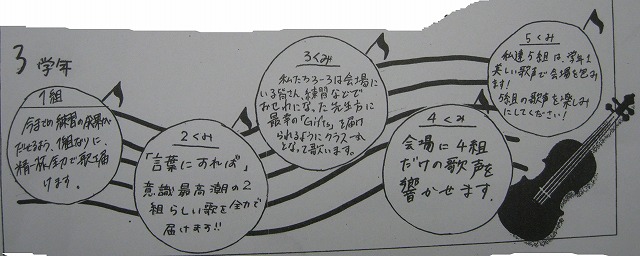 3 学年
1組
今までの練習の成果が
だせるよう、1組なりに
精一杯全力で歌を届
けます。
2くみ
「言葉にすれば」
意識最高潮の2
組らしい歌を全力で
届けます!!
3くみ
私たち3-3は会場に
いる皆さん、練習などで
おせわになった先生方に
最幸の「Gifts」を届け
られるようにクラス一丸
となって歌います。
4くみ
会場に4組
だけの歌声を
響かせます.
5くみ
私達5組は、学年1
美しい歌声で会場を包み
ます!
5組の歌声を楽しみ
にしてください!